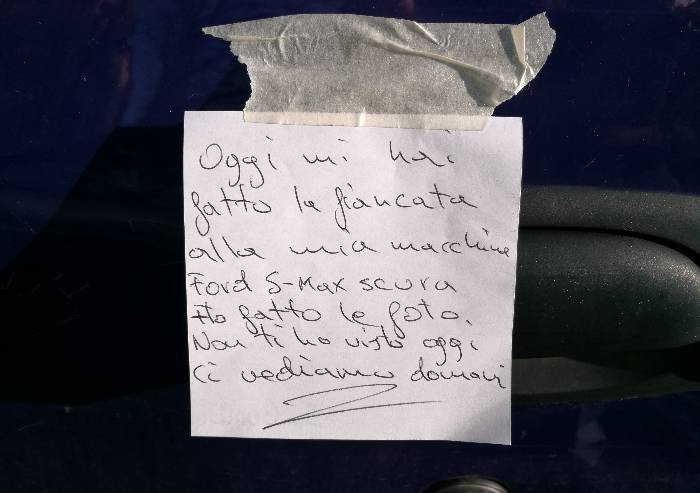 Oggi mi hai
fatto la fiancata
alla mia macchina
Ford S-Max scura
Ho fatto le foto.
Non ti ho visto oggi
ci vediamo domani